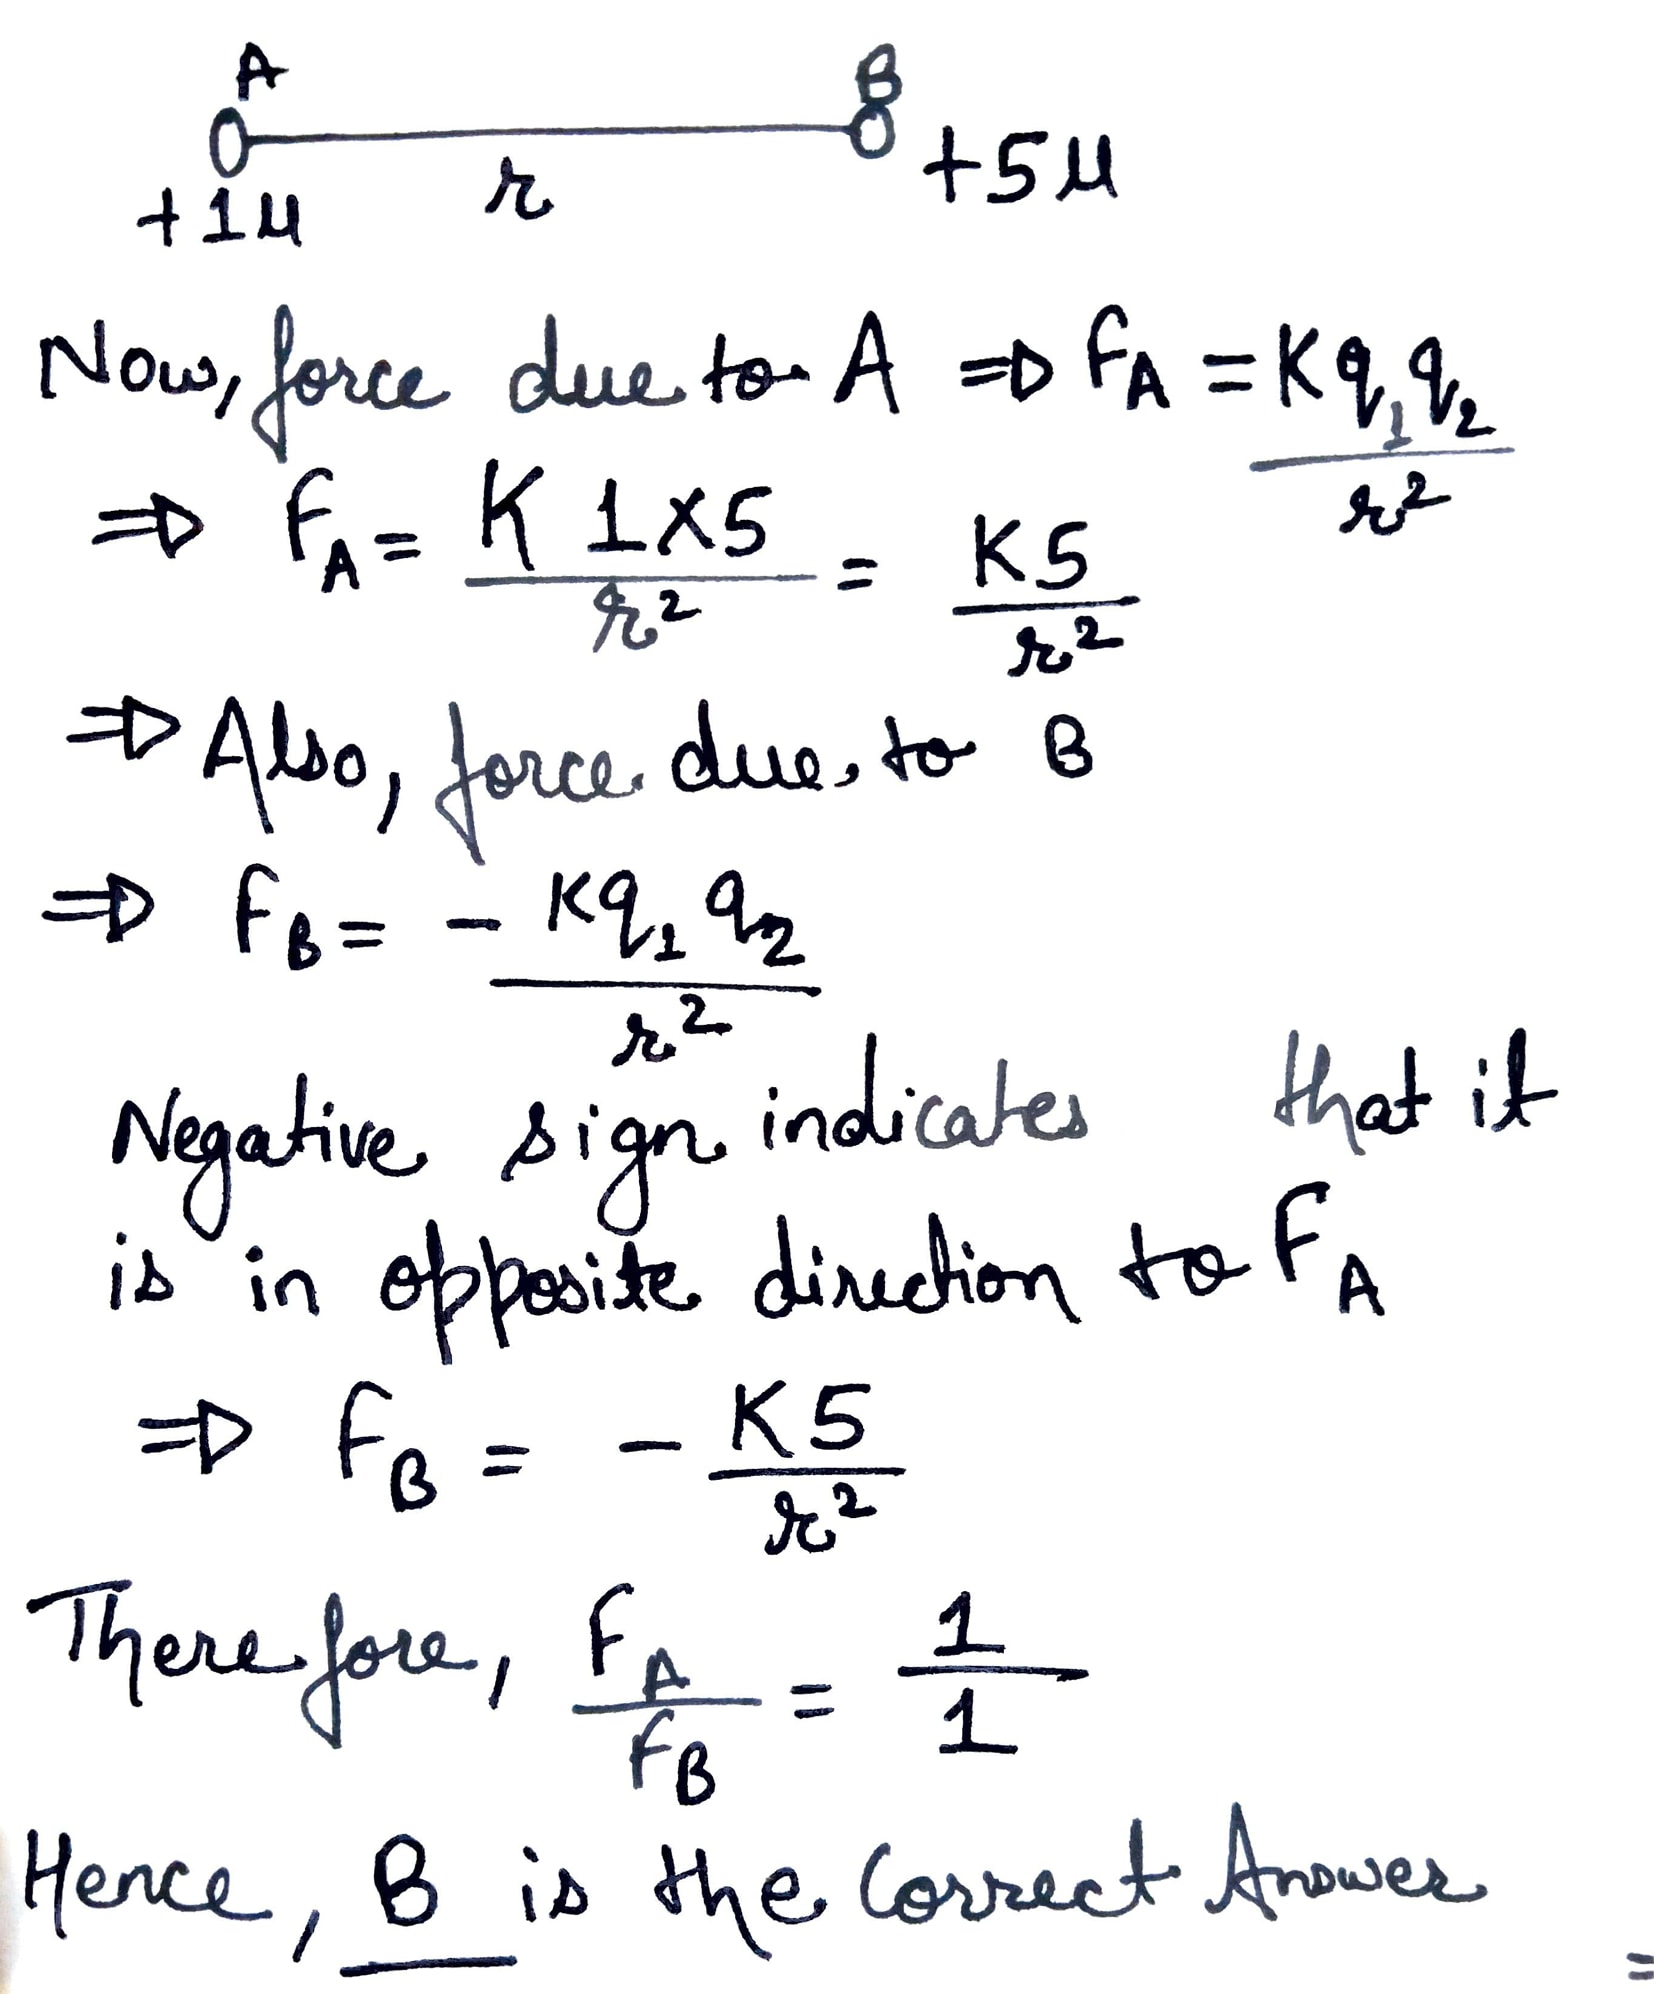 A B
+1μ r +5μ
Now, force due to A ⇒ FA = Kq1q2/r²
⇒ FA = K 1×5/r² = K5/r²
⇒ Also, force due to B
⇒ FB = - Kq1q2/r²
Negative sign indicates that it
is in opposite direction to FA
⇒ FB = - K5/r²
Therefore, FA/FB = 1/1
Hence, B is the Correct Answer
=